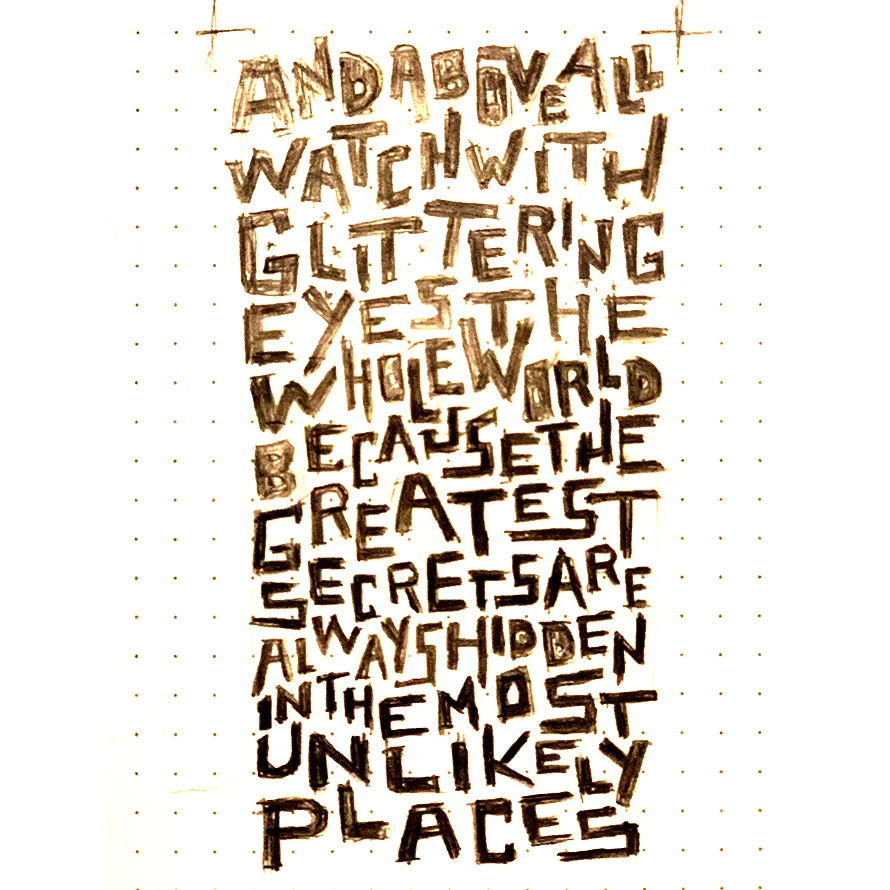 AND ABOVE ALL
WATCH WITH
GLITTERING
EYES THE
WHOLE WORLD
BECAUSE THE
GREATEST
SECRETS ARE
ALWAYS HIDDEN
IN THE MOST
UNLIKELY
PLACES